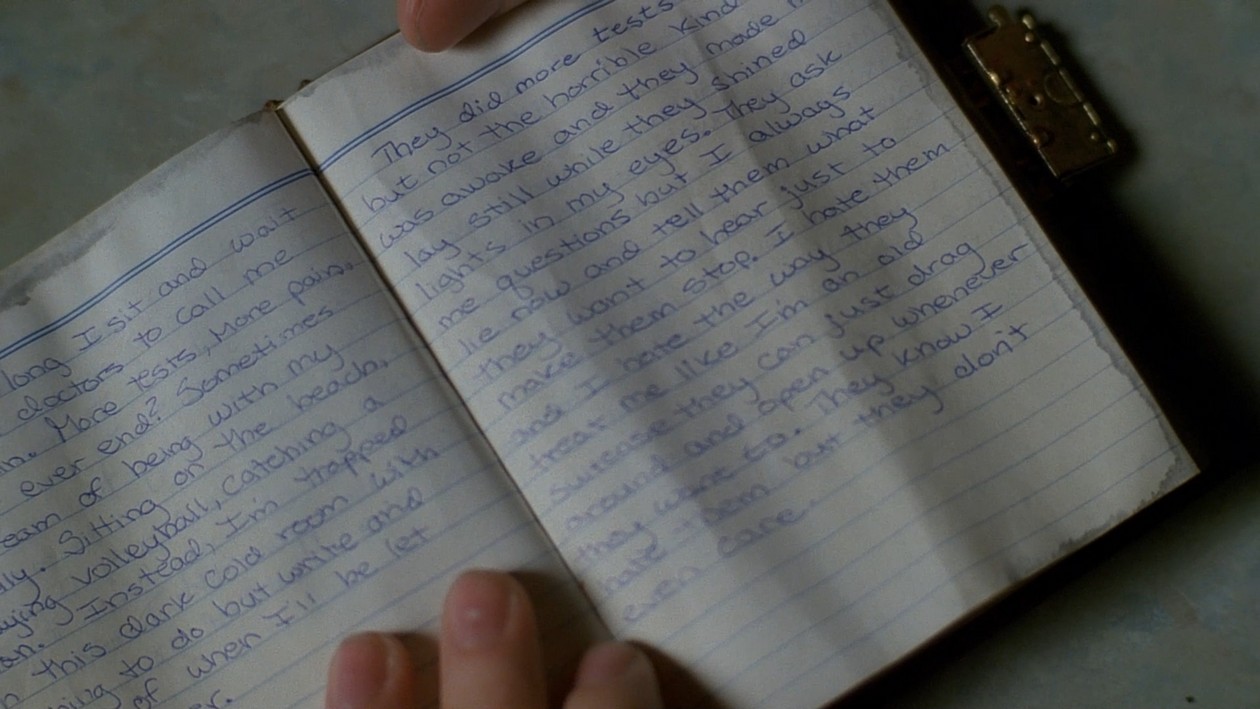 long I sit and wait
doctors to call me
in. More tests, More pain.
ever end? Sometimes
of being with my
Sitting on the beach,
volleyball, catching a
Instead, I'm trapped
this dark cold room with
to do but write and
of when I'll be let
They did more tests
but not the horrible kind
was awake and they made
lay still while they shined
lights in my eyes. They ask
me questions but I always
lie now and tell them what
they want to hear just to
make them stop. I hate them
and I hate the way they
treat me like I'm an old
suitcase they can just drag
around and open up whenever
they want to. They know I
hate them but they don't
even care.